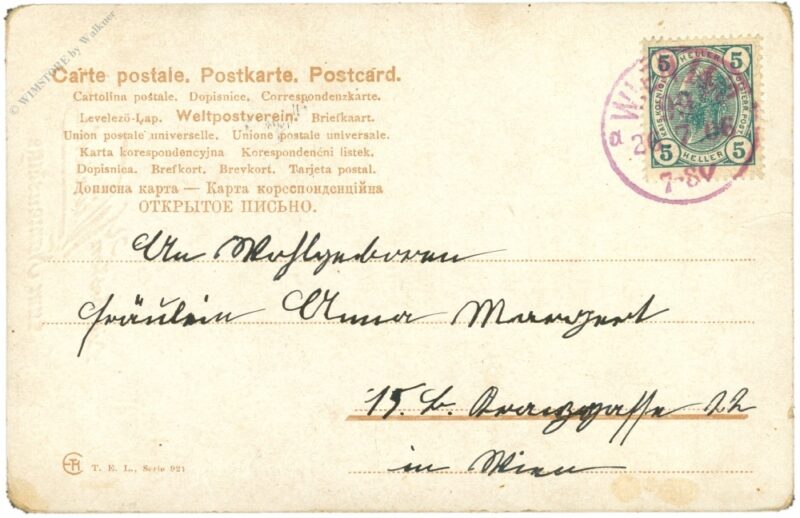 © WIMSTORE by Walkner
Carte postale. Postkarte. Postcard.
Cartolina postale. Dopisnice. Correspondenzkarte.
Levelező-Lap. Weltpostverein. Briefkaart.
Union postale universelle. Unione postale universale.
Karta korespondencyjna Korespondenční listek.
Dopisnica. Brefkort. Brevkort. Tarjeta postal.
Дописна карта — Карта кореспонденційна
ОТКРЫТОЕ ПИСЬНО.
5 5
HELLER
KAIS. KÖNIGL. ÖSTERR. POST
5 HELLER 5
7-8
An Wohlgeboren
Fräulein Anna
15. b. 22
in Wien
T. E. L., Serie 921